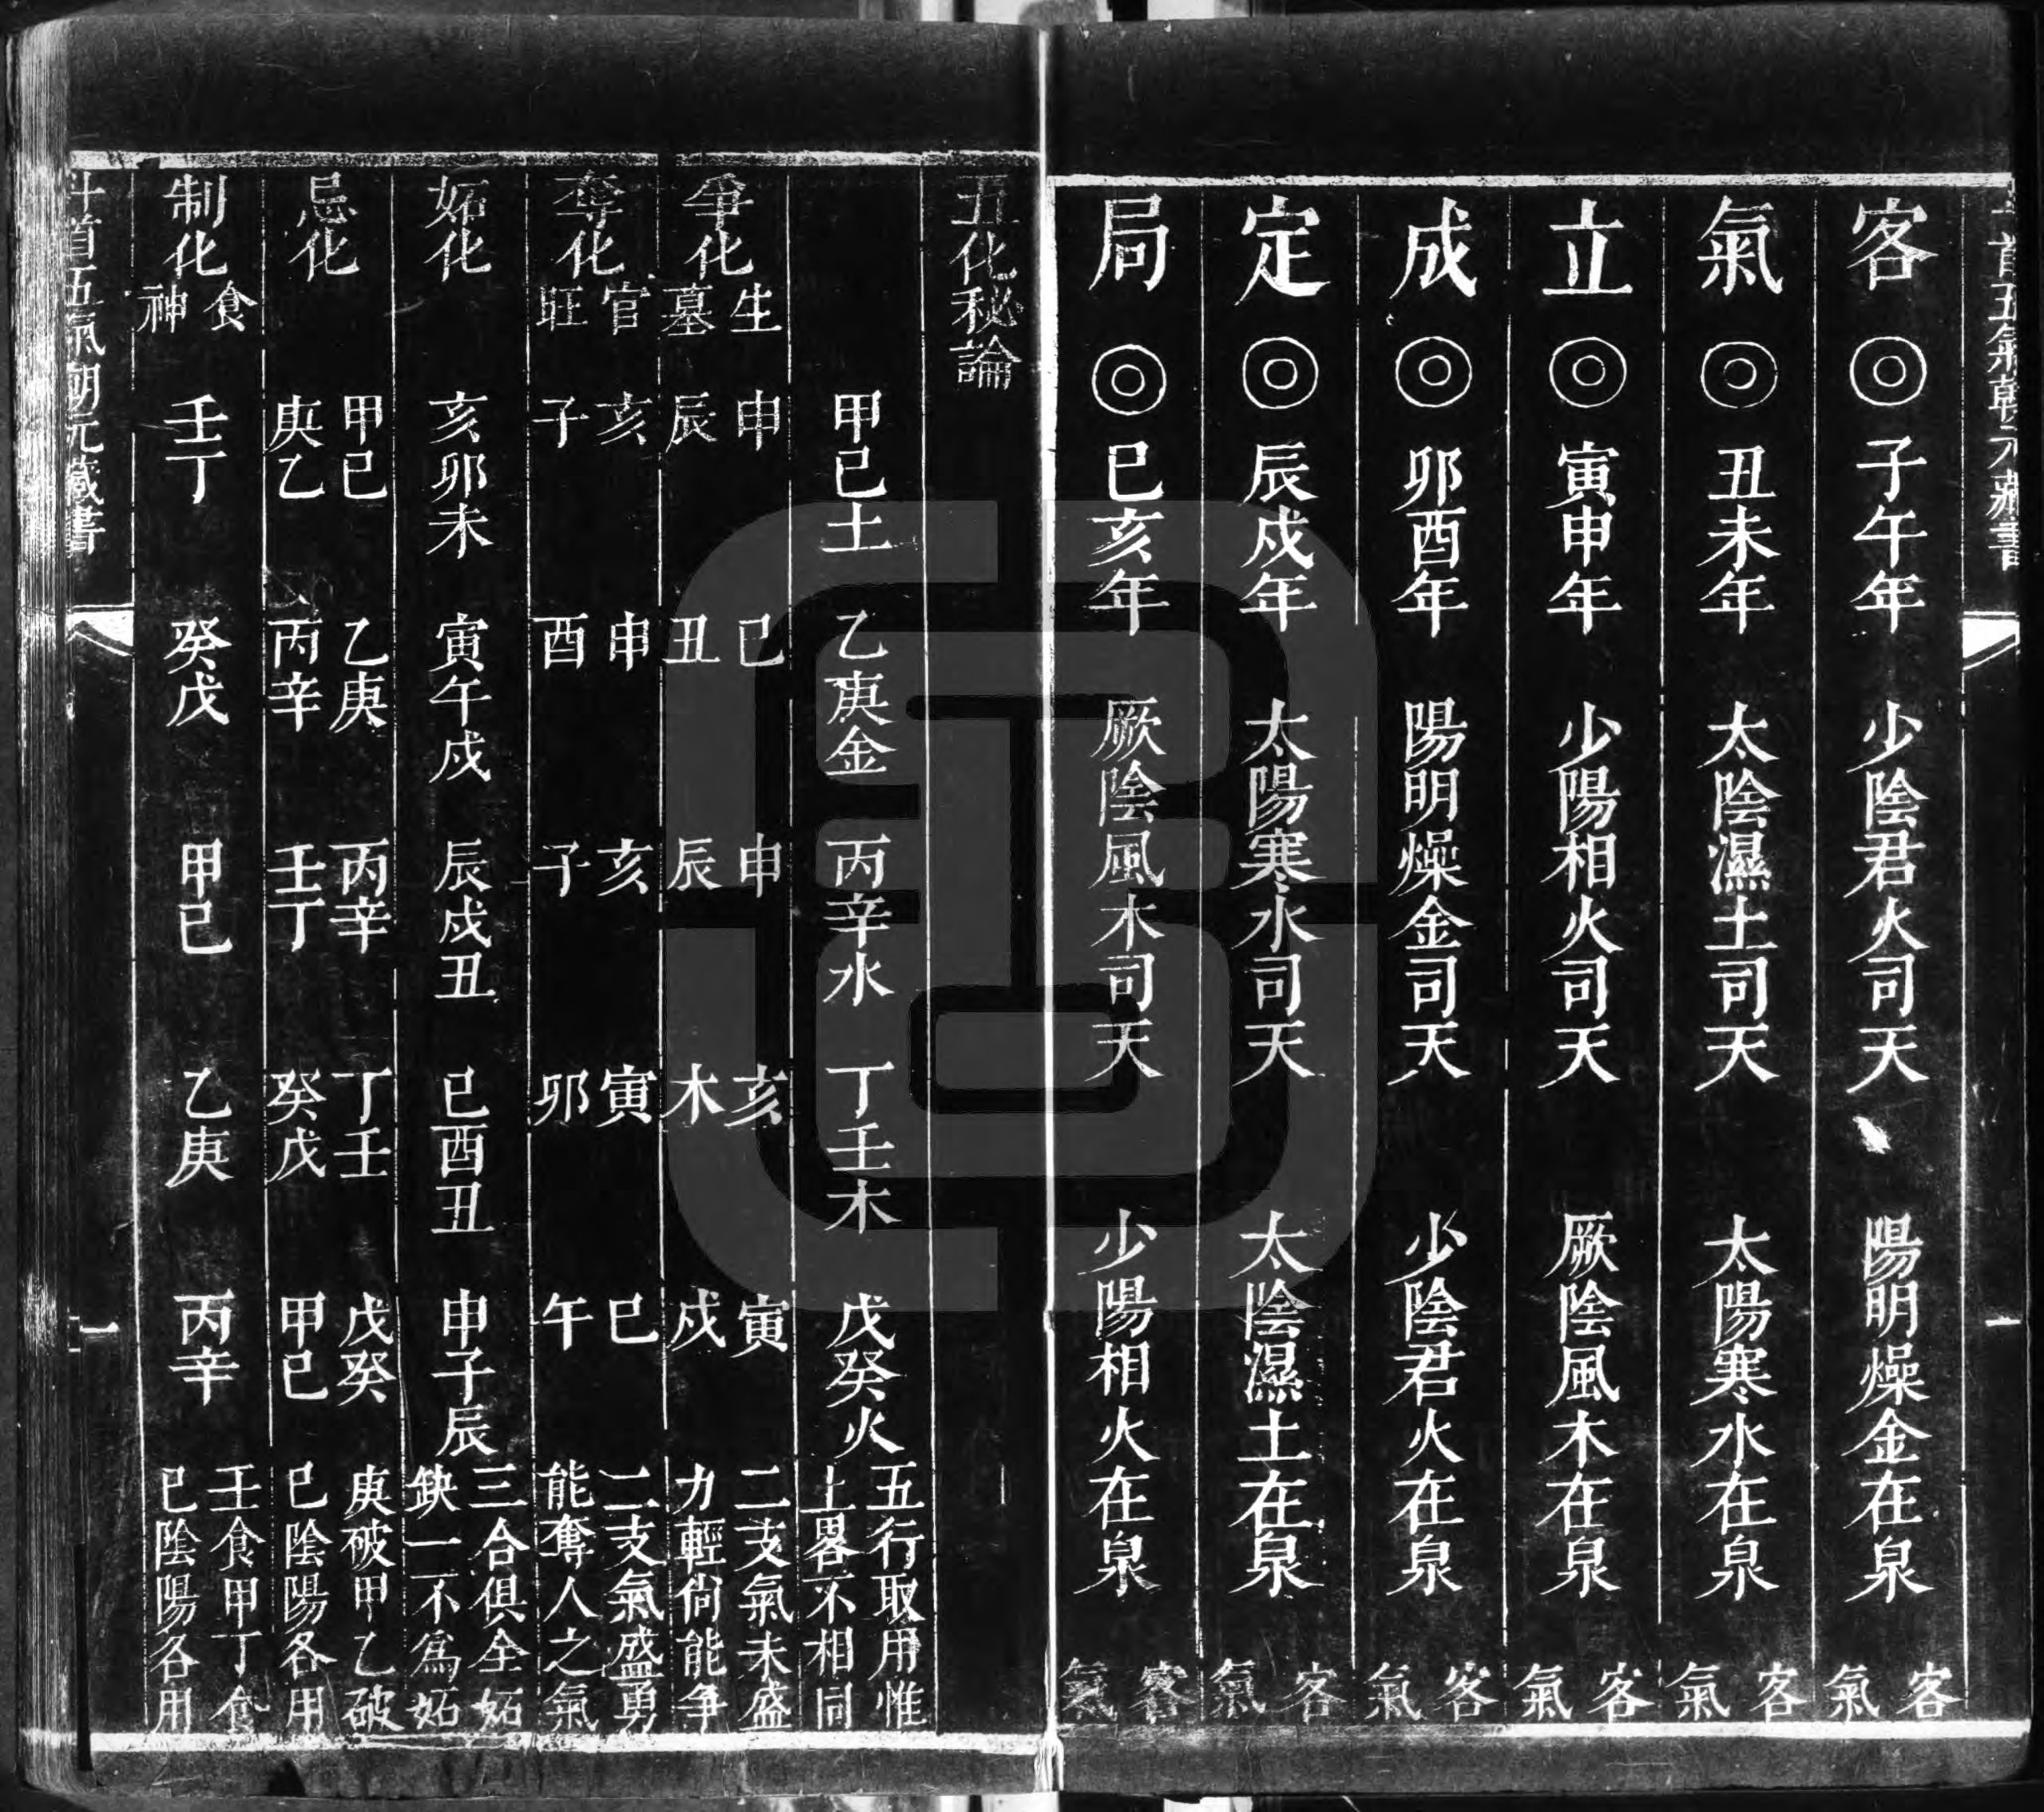 客◎子午年 少陰君火司天 陽明燥金在泉 客氣
氣◎丑未年 太陰濕土司天 太陽寒水在泉 客氣
立◎寅申年 少陽相火司天 厥陰風木在泉 客氣
成◎卯酉年 陽明燥金司天 少陰君火在泉 客氣
定◎辰戌年 太陽寒水司天 太陰濕土在泉 客氣
局◎巳亥年 厥陰風木司天 少陽相火在泉 客氣
五化秘論
甲己土 乙庚金 丙辛水 丁壬木 戊癸火 五行取用惟上畧不相同
爭化生墓 申辰 巳丑 申辰 亥木 寅戌 二支氣未盛力輕尙能爭
奪化官旺 亥子 申酉 亥子 寅卯 巳午 二支氣盛勇能奪人之氣
妬化 亥卯未 寅午戌 辰戌丑 巳酉丑 申子辰 三合俱全妬缺一不爲妬
忌化 甲己庚乙 乙庚丙辛 丙辛壬丁 丁壬癸戊 戊癸甲己 庚破甲乙破己陰陽各用
制化食神 壬丁 癸戊 甲己 乙庚 丙辛 壬食甲丁食己陰陽各用
斗首五氣朝元藏書 一